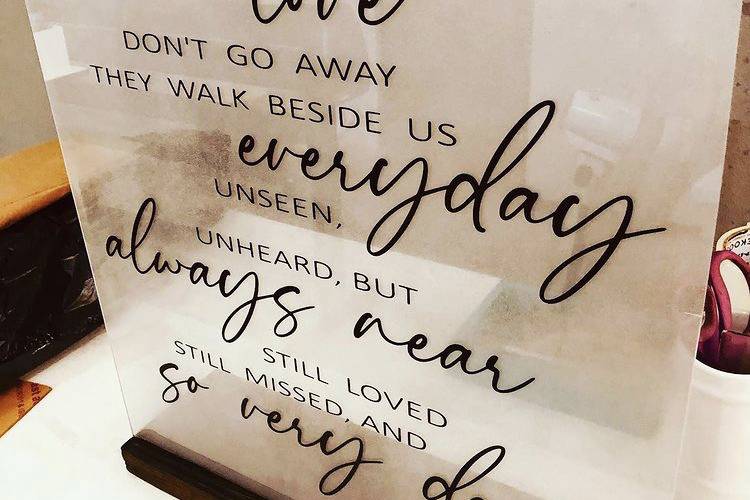 love
DON'T GO AWAY
THEY WALK BESIDE US
everyday
UNSEEN,
UNHEARD, BUT
always near
STILL LOVED
STILL MISSED, AND
so very